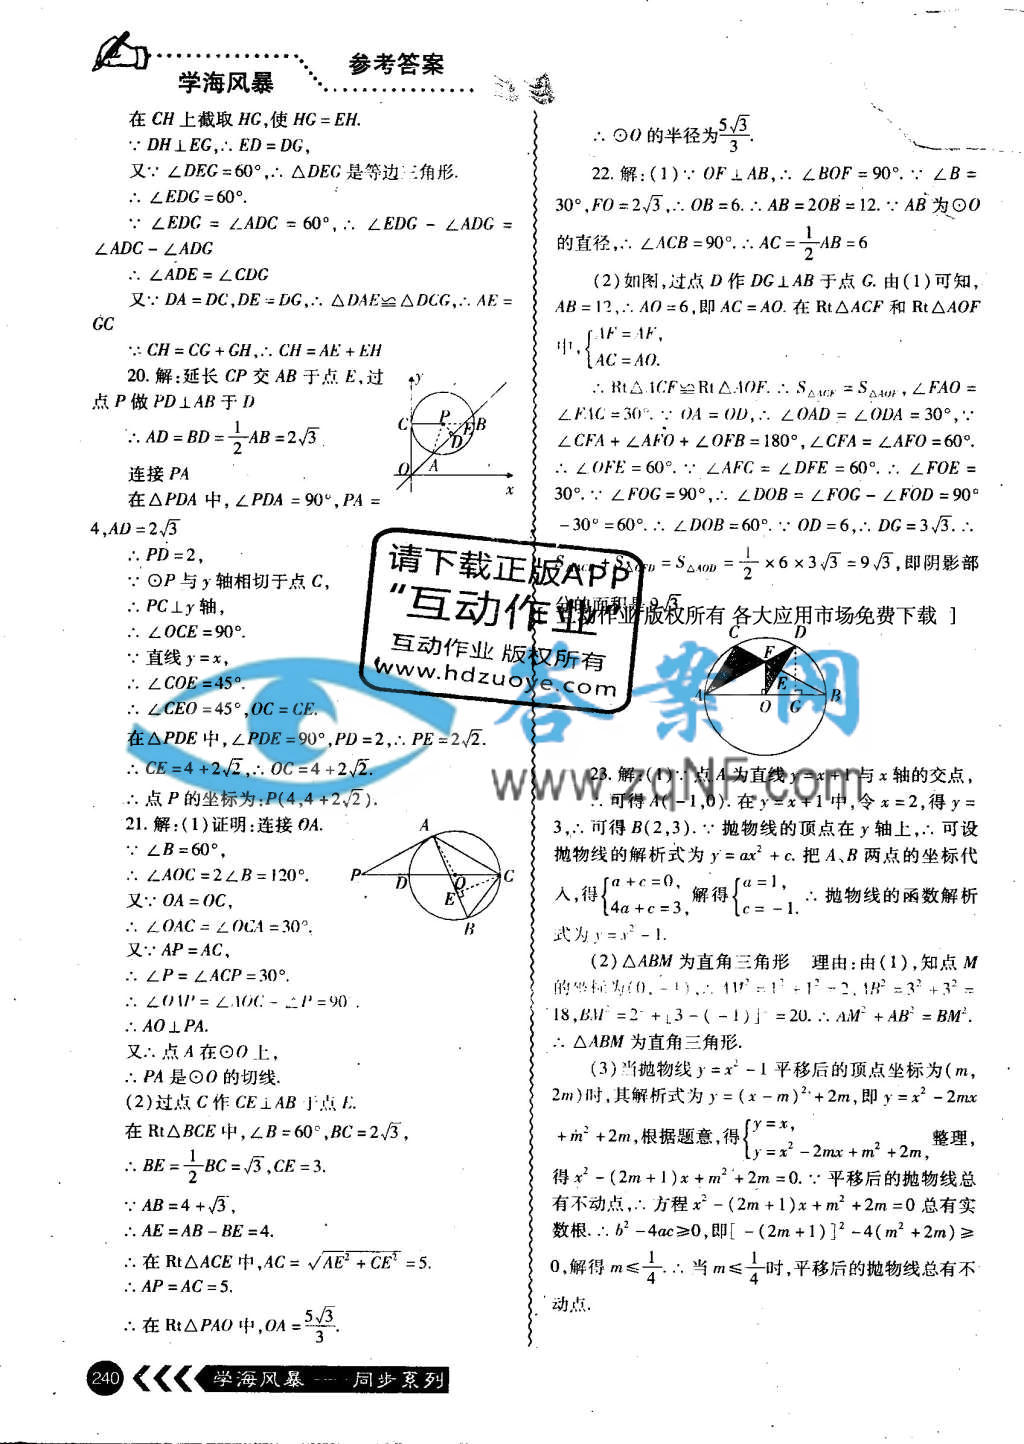 参考答案
学海风暴
在 CH 上截取 HG,使 HG = EH.
∵ DH⊥EG,∴ ED = DG,
又∵ ∠DEG = 60°,∴ △DEG 是等边三角形.
∴ ∠EDG = 60°.
∵ ∠EDG = ∠ADC = 60°,∴ ∠EDG - ∠ADG =
∠ADC - ∠ADG
∴ ∠ADE = ∠CDG
又∵ DA = DC,DE = DG,∴ △DAE≌△DCG,∴ AE =
GC
∵ CH = CG + GH,∴ CH = AE + EH
20. 解:延长 CP 交 AB 于点 E,过
点 P 做 PD⊥AB 于 D
∴ AD = BD = 1/2 AB = 2√3
连接 PA
在△PDA 中, ∠PDA = 90°, PA =
4,AD = 2√3
∴ PD = 2,
∵ ⊙P 与 y 轴相切于点 C,
∴ PC⊥y 轴,
∴ ∠OCE = 90°.
∵ 直线 y = x,
∴ ∠COE = 45°.
∴ ∠CEO = 45°,OC = CE.
在△PDE 中,∠PDE = 90°,PD = 2,∴ PE = 2√2.
∴ CE = 4 + 2√2,∴ OC = 4 + 2√2.
∴ 点 P 的坐标为:P(4,4 + 2√2).
21. 解:(1)证明:连接 OA.
∵ ∠B = 60°,
∴ ∠AOC = 2∠B = 120°.
又∵ OA = OC,
∴ ∠OAC = ∠OCA = 30°.
又∵ AP = AC,
∴ ∠P = ∠ACP = 30°.
∴ ∠OAP = ∠AOC - ∠P = 90
∴ AO⊥PA.
又∴ 点 A 在⊙O 上,
∴ PA 是⊙O 的切线.
(2)过点 C 作 CE⊥AB 于点 E.
在 Rt△BCE 中,∠B = 60°,BC = 2√3,
∴ BE = 1/2 BC = √3,CE = 3.
∵ AB = 4 + √3,
∴ AE = AB - BE = 4.
∴ 在 Rt△ACE 中,AC = √(AE² + CE²) = 5.
∴ AP = AC = 5.
∴ 在 Rt△PAO 中,OA = 5√3/3.
y
C P B E D A O x
A P D O C E B
∴ ⊙O 的半径为 5√3/3.
22. 解:(1)∵ OF⊥AB,∴ ∠BOF = 90°. ∵ ∠B =
30°,FO = 2√3,∴ OB = 6. ∴ AB = 2OB = 12. ∵ AB 为⊙O
的直径,∴ ∠ACB = 90°. ∴ AC = 1/2 AB = 6
(2)如图,过点 D 作 DG⊥AB 于点 G. 由(1)可知,
AB = 12,∴ AO = 6,即 AC = AO. 在 Rt△ACF 和 Rt△AOF
中, { AF = AF,
AC = AO.
∴ Rt△ACF≌Rt△AOF. ∴ S△ACF = S△AOF, ∠FAO =
∠FAC = 30°. ∵ OA = OD,∴ ∠OAD = ∠ODA = 30°,∵
∠CFA + ∠AFO + ∠OFB = 180°,∠CFA = ∠AFO = 60°.
∴ ∠OFE = 60°. ∵ ∠AFC = ∠DFE = 60°. ∴ ∠FOE =
30°. ∵ ∠FOG = 90°,∴ ∠DOB = ∠FOG - ∠FOD = 90°
- 30° = 60°. ∴ ∠DOB = 60°. ∵ OD = 6,∴ DG = 3√3. ∴
= S△AOD = 1/2 × 6 × 3√3 = 9√3,即阴影部
分的面积是 9√3
C D F E A O G B
23. 解:(1)∵ 点 A 为直线 y = x + 1 与 x 轴的交点,
∴ 可得 A(-1,0). 在 y = x + 1 中,令 x = 2,得 y =
3,∴ 可得 B(2,3). ∵ 抛物线的顶点在 y 轴上,∴ 可设
抛物线的解析式为 y = ax² + c. 把 A、B 两点的坐标代
入,得 { a + c = 0, 4a + c = 3, 解得 { a = 1, c = -1. ∴ 抛物线的函数解析
式为 y = x² - 1.
(2)△ABM 为直角三角形 理由:由(1),知点 M
的坐标为(0, -1),∴ AM² = 1² + 1² = 2, AB² = 3² + 3² =
18,BM² = 2² + [3 - (-1)]² = 20. ∴ AM² + AB² = BM².
∴ △ABM 为直角三角形.
(3)当抛物线 y = x² - 1 平移后的顶点坐标为(m,
2m)时,其解析式为 y = (x - m)² + 2m,即 y = x² - 2mx
+ m² + 2m,根据题意,得 { y = x, y = x² - 2mx + m² + 2m, 整理,
得 x² - (2m + 1)x + m² + 2m = 0. ∵ 平移后的抛物线总
有不动点,∴ 方程 x² - (2m + 1)x + m² + 2m = 0 总有实
数根. ∴ b² - 4ac ≥ 0,即[ - (2m + 1)]² - 4(m² + 2m) ≥
0,解得 m ≤ 1/4. ∴ 当 m ≤ 1/4 时,平移后的抛物线总有不
动点.
请下载正版APP
“互动作业”
互动作业 版权所有
www.hdzuoye.com
互动作业 版权所有 各大应用市场免费下载 ]
答案网
www.zqNF.com
240
学海风暴 — 同步系列